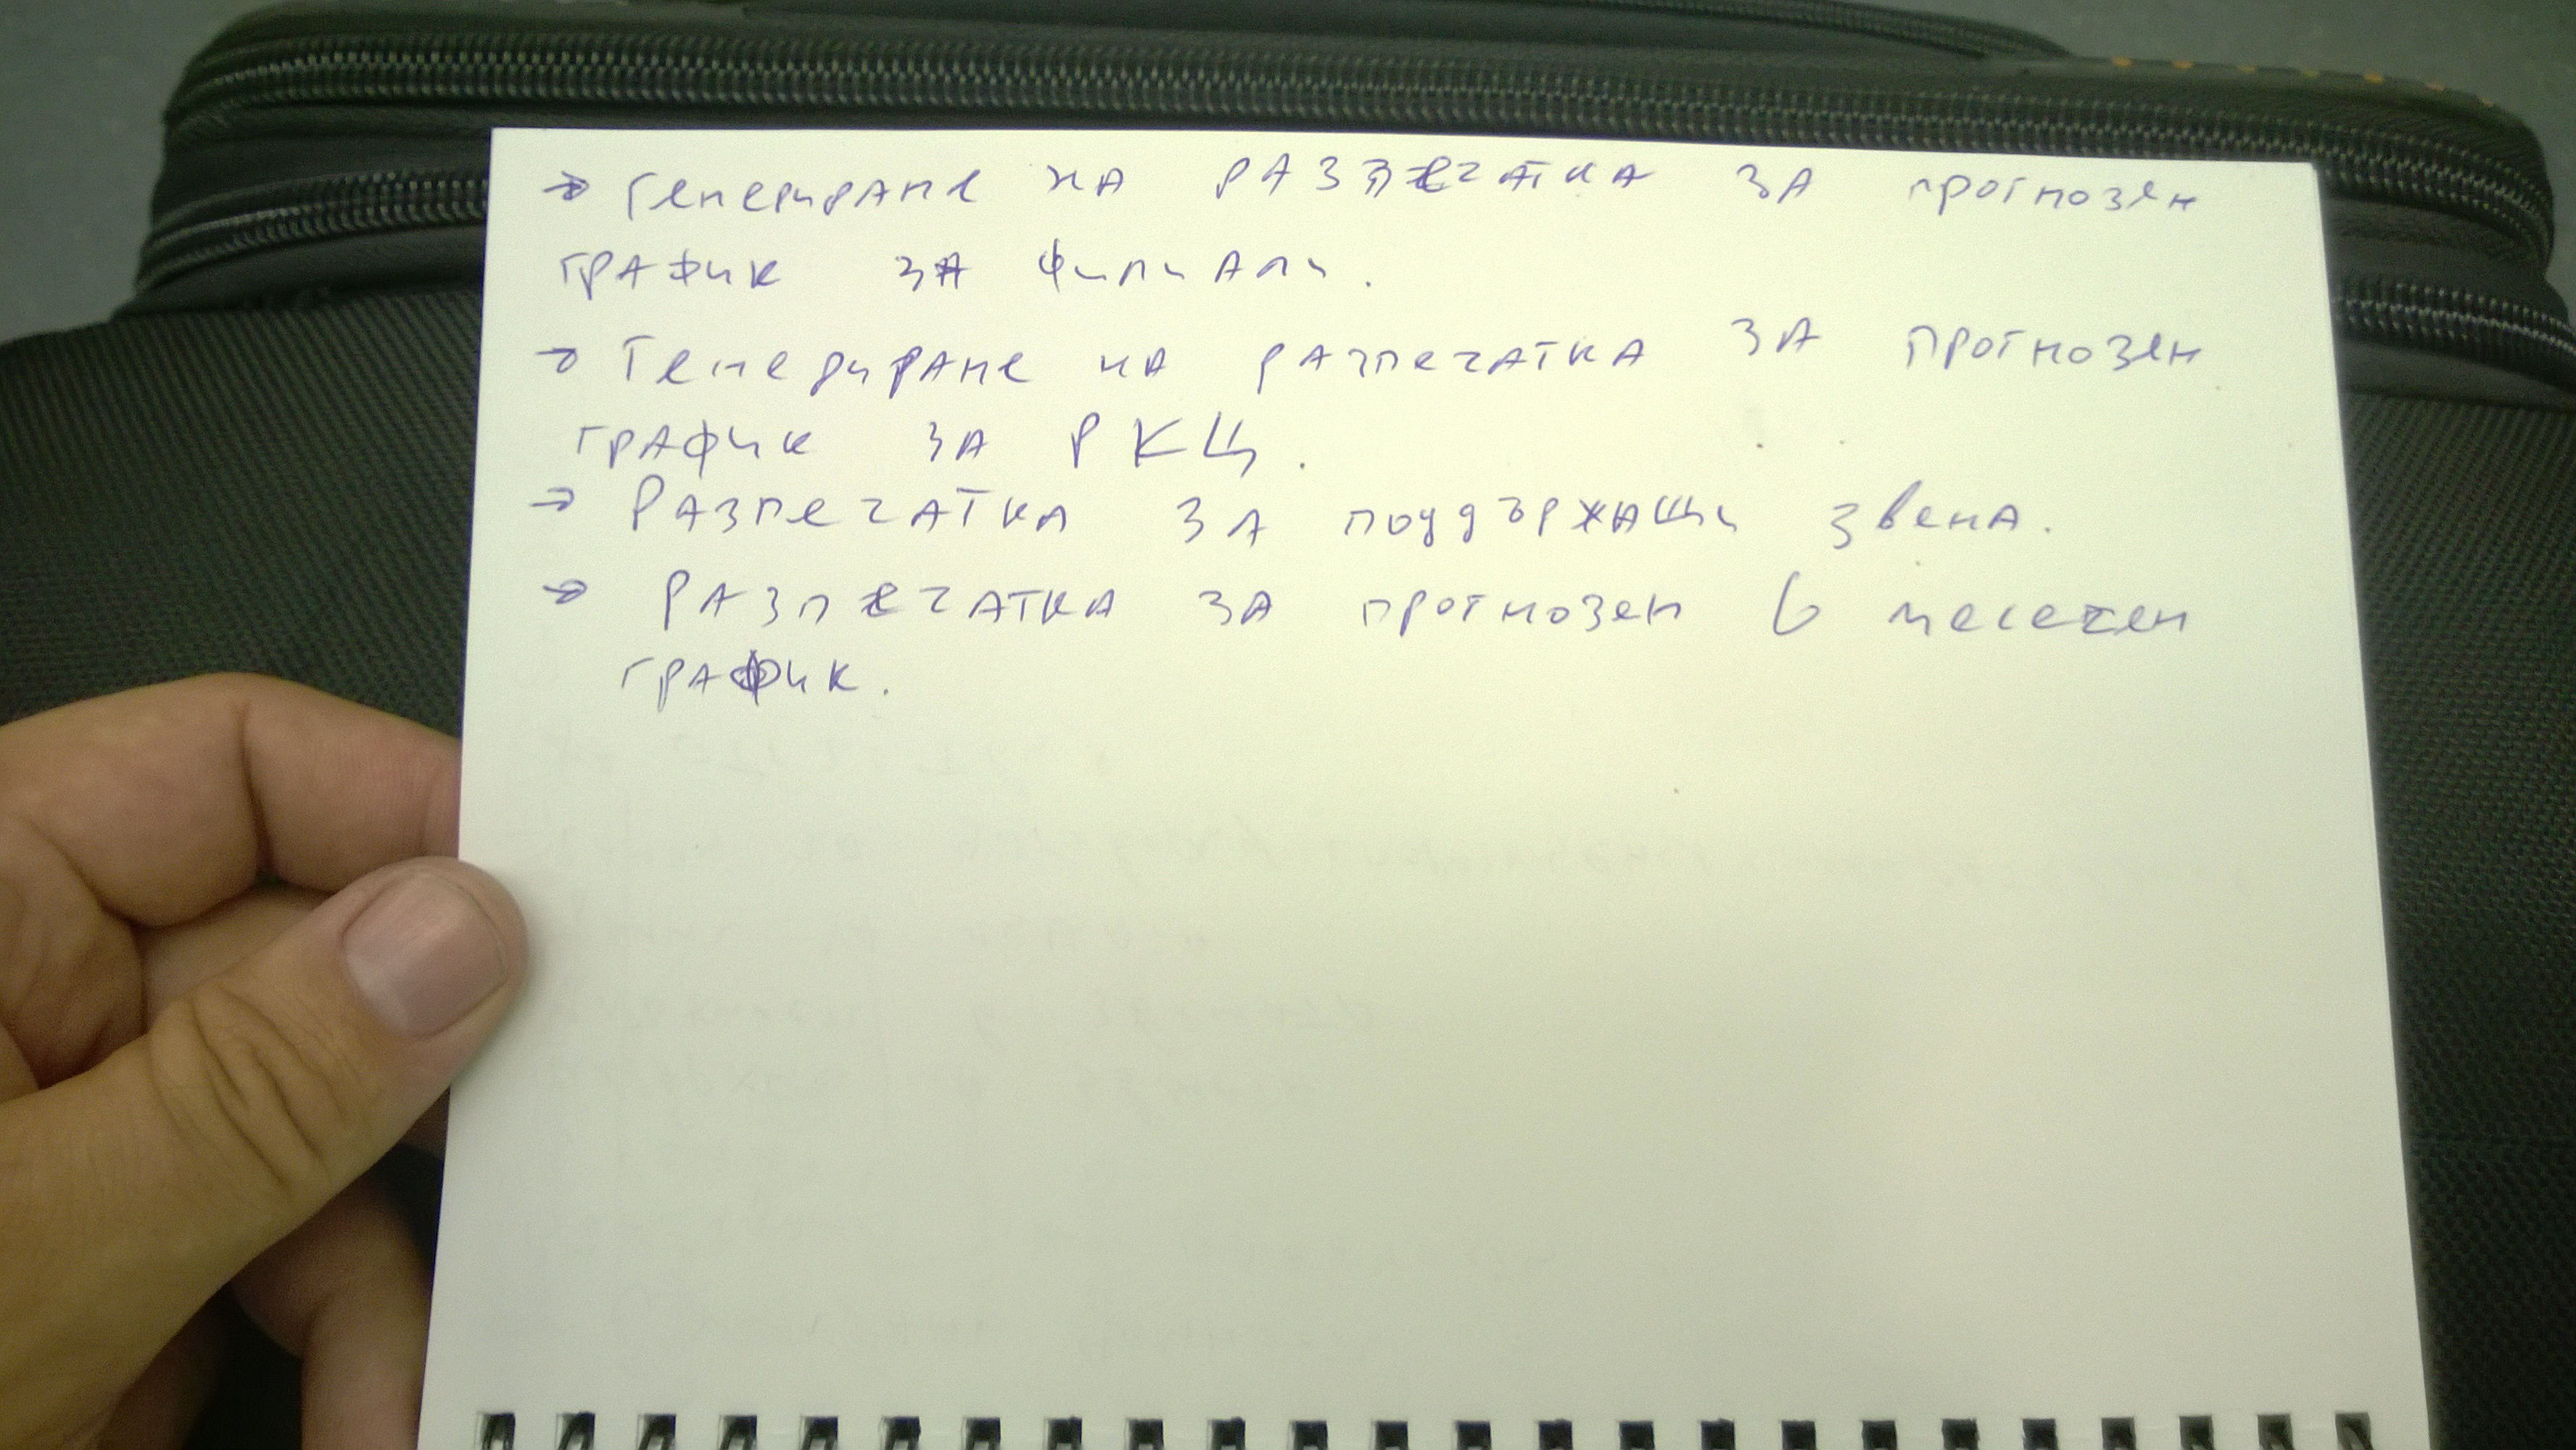 → Генериране на разпечатка за прогнозен
график за филиали.
→ Генериране на разпечатка за прогнозен
график за РКЦ.
→ Разпечатка за поддържащи звена.
→ Разпечатка за прогнозен 6 месечен
график.